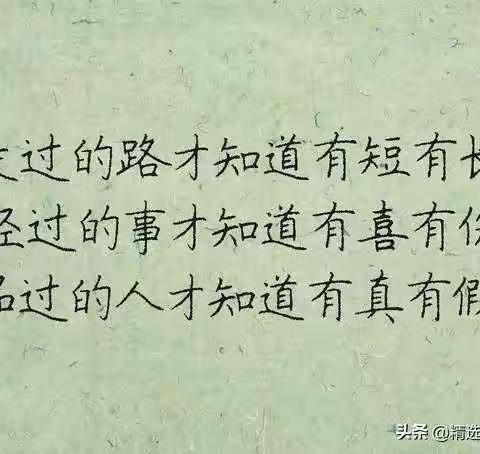 过的路才知道有短有长
经过的事才知道有喜有
过的人才知道有真有假
头条 @精选